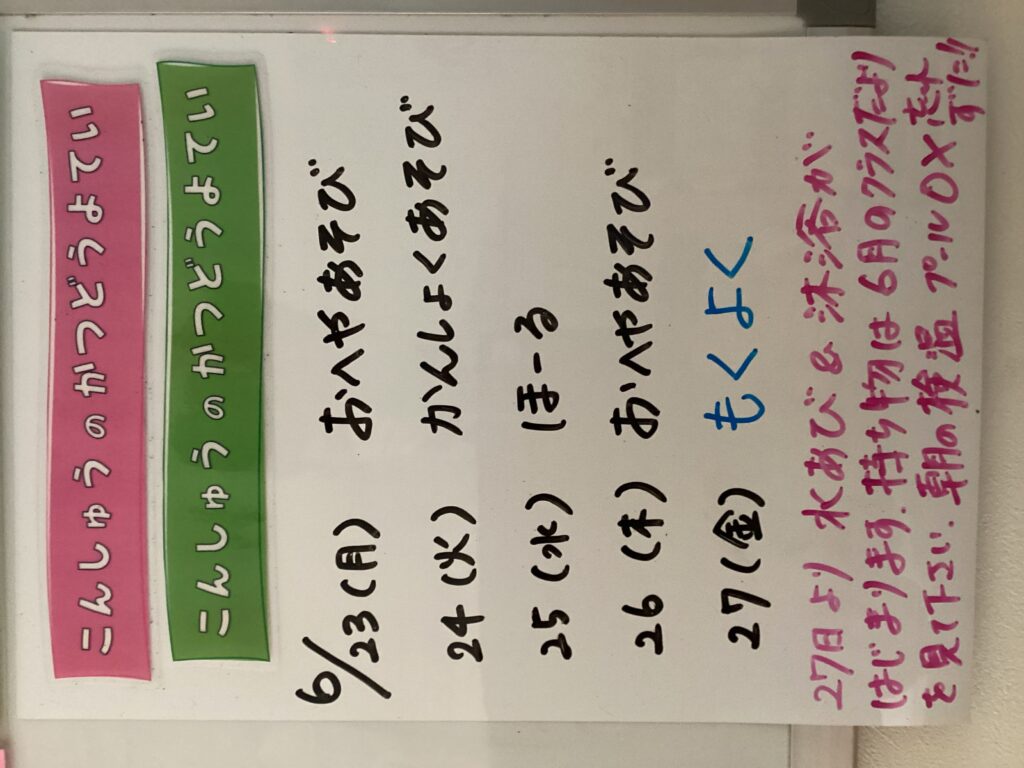 こんしゅうのかつどうよてい
こんしゅうのかつどうよてい
6/23(月) おへやあそび
24(火) かんしょくあそび
25(水) ほーる
26(木) おへやあそび
27(金) もくよく
27日より 水あび & 沐浴が
はじまります。持ち物は 6月のクラスだより
を見て下さい。朝の検温 プール〇×
ずに!!